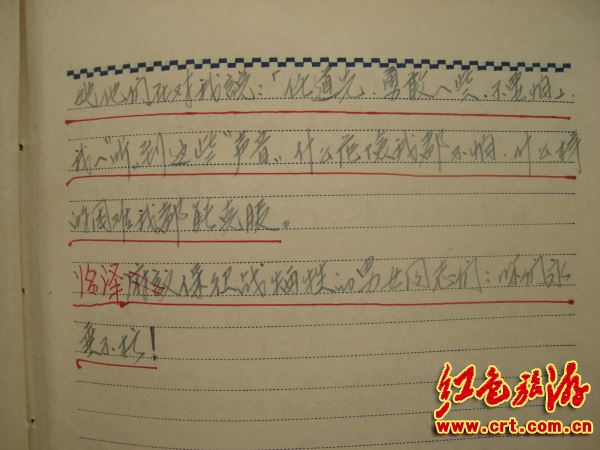 他们在对我说：“任道光，勇敢一些，不要怕”，
我“听”到这些“声音”，什么危险我都不怕，什么样
的困难我都能克服。
临泽 战牺牲的男女同志们：你们永
垂不朽！
红色旅游
www.crt.com.cn